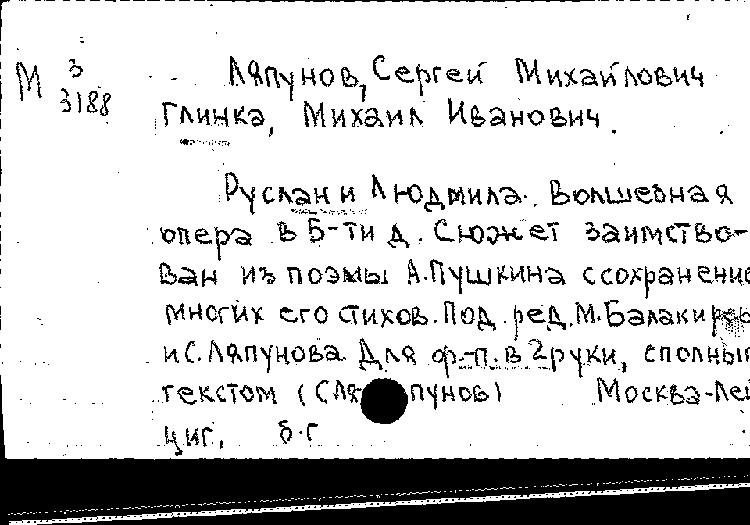 М 3
3188
Ляпунов, Сергей Михайлович
Глинка, Михаил Иванович.
Руслан и Людмила. Волшебная
опера в 5-ти д. Сюжет заимство-
ван из поэмы А.Пушкина с сохранение
многих его стихов. Под. ред. М. Балакирев
и С. Ляпунова. Для ф.-п. в 2 руки, сполным
текстом (С Ля пунов) Москва-Лей
циг, б.г